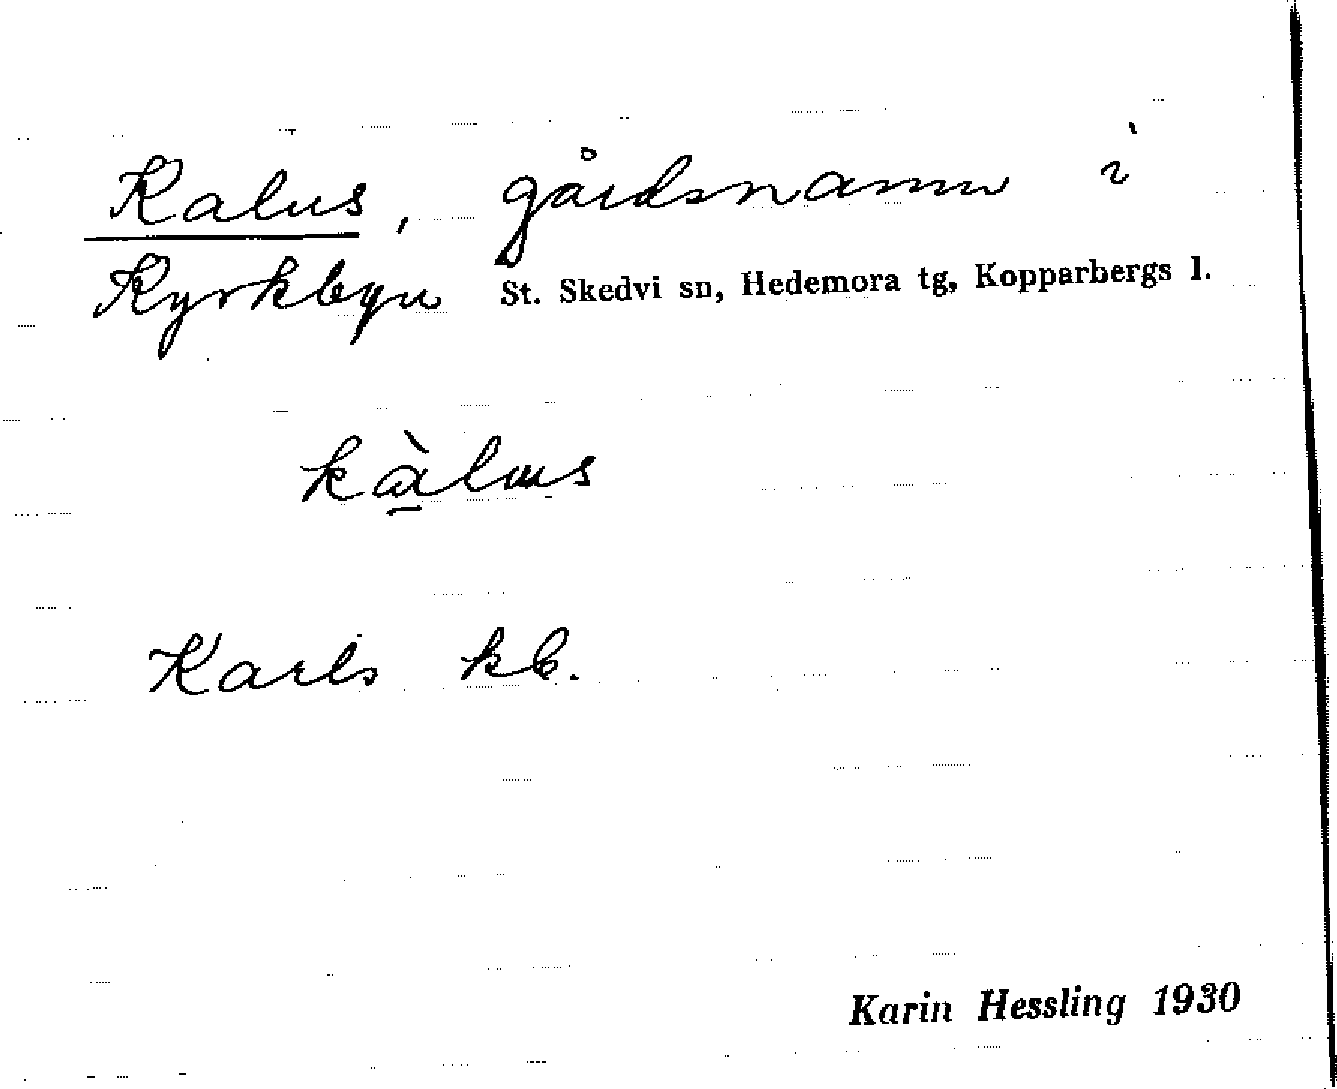 Kalus, gårdsnamn i
Kyrkbyn St. Skedvi sn, Hedemora tg, Kopparbergs l.
kàlus
Karls kb.
Karin Hessling 1930